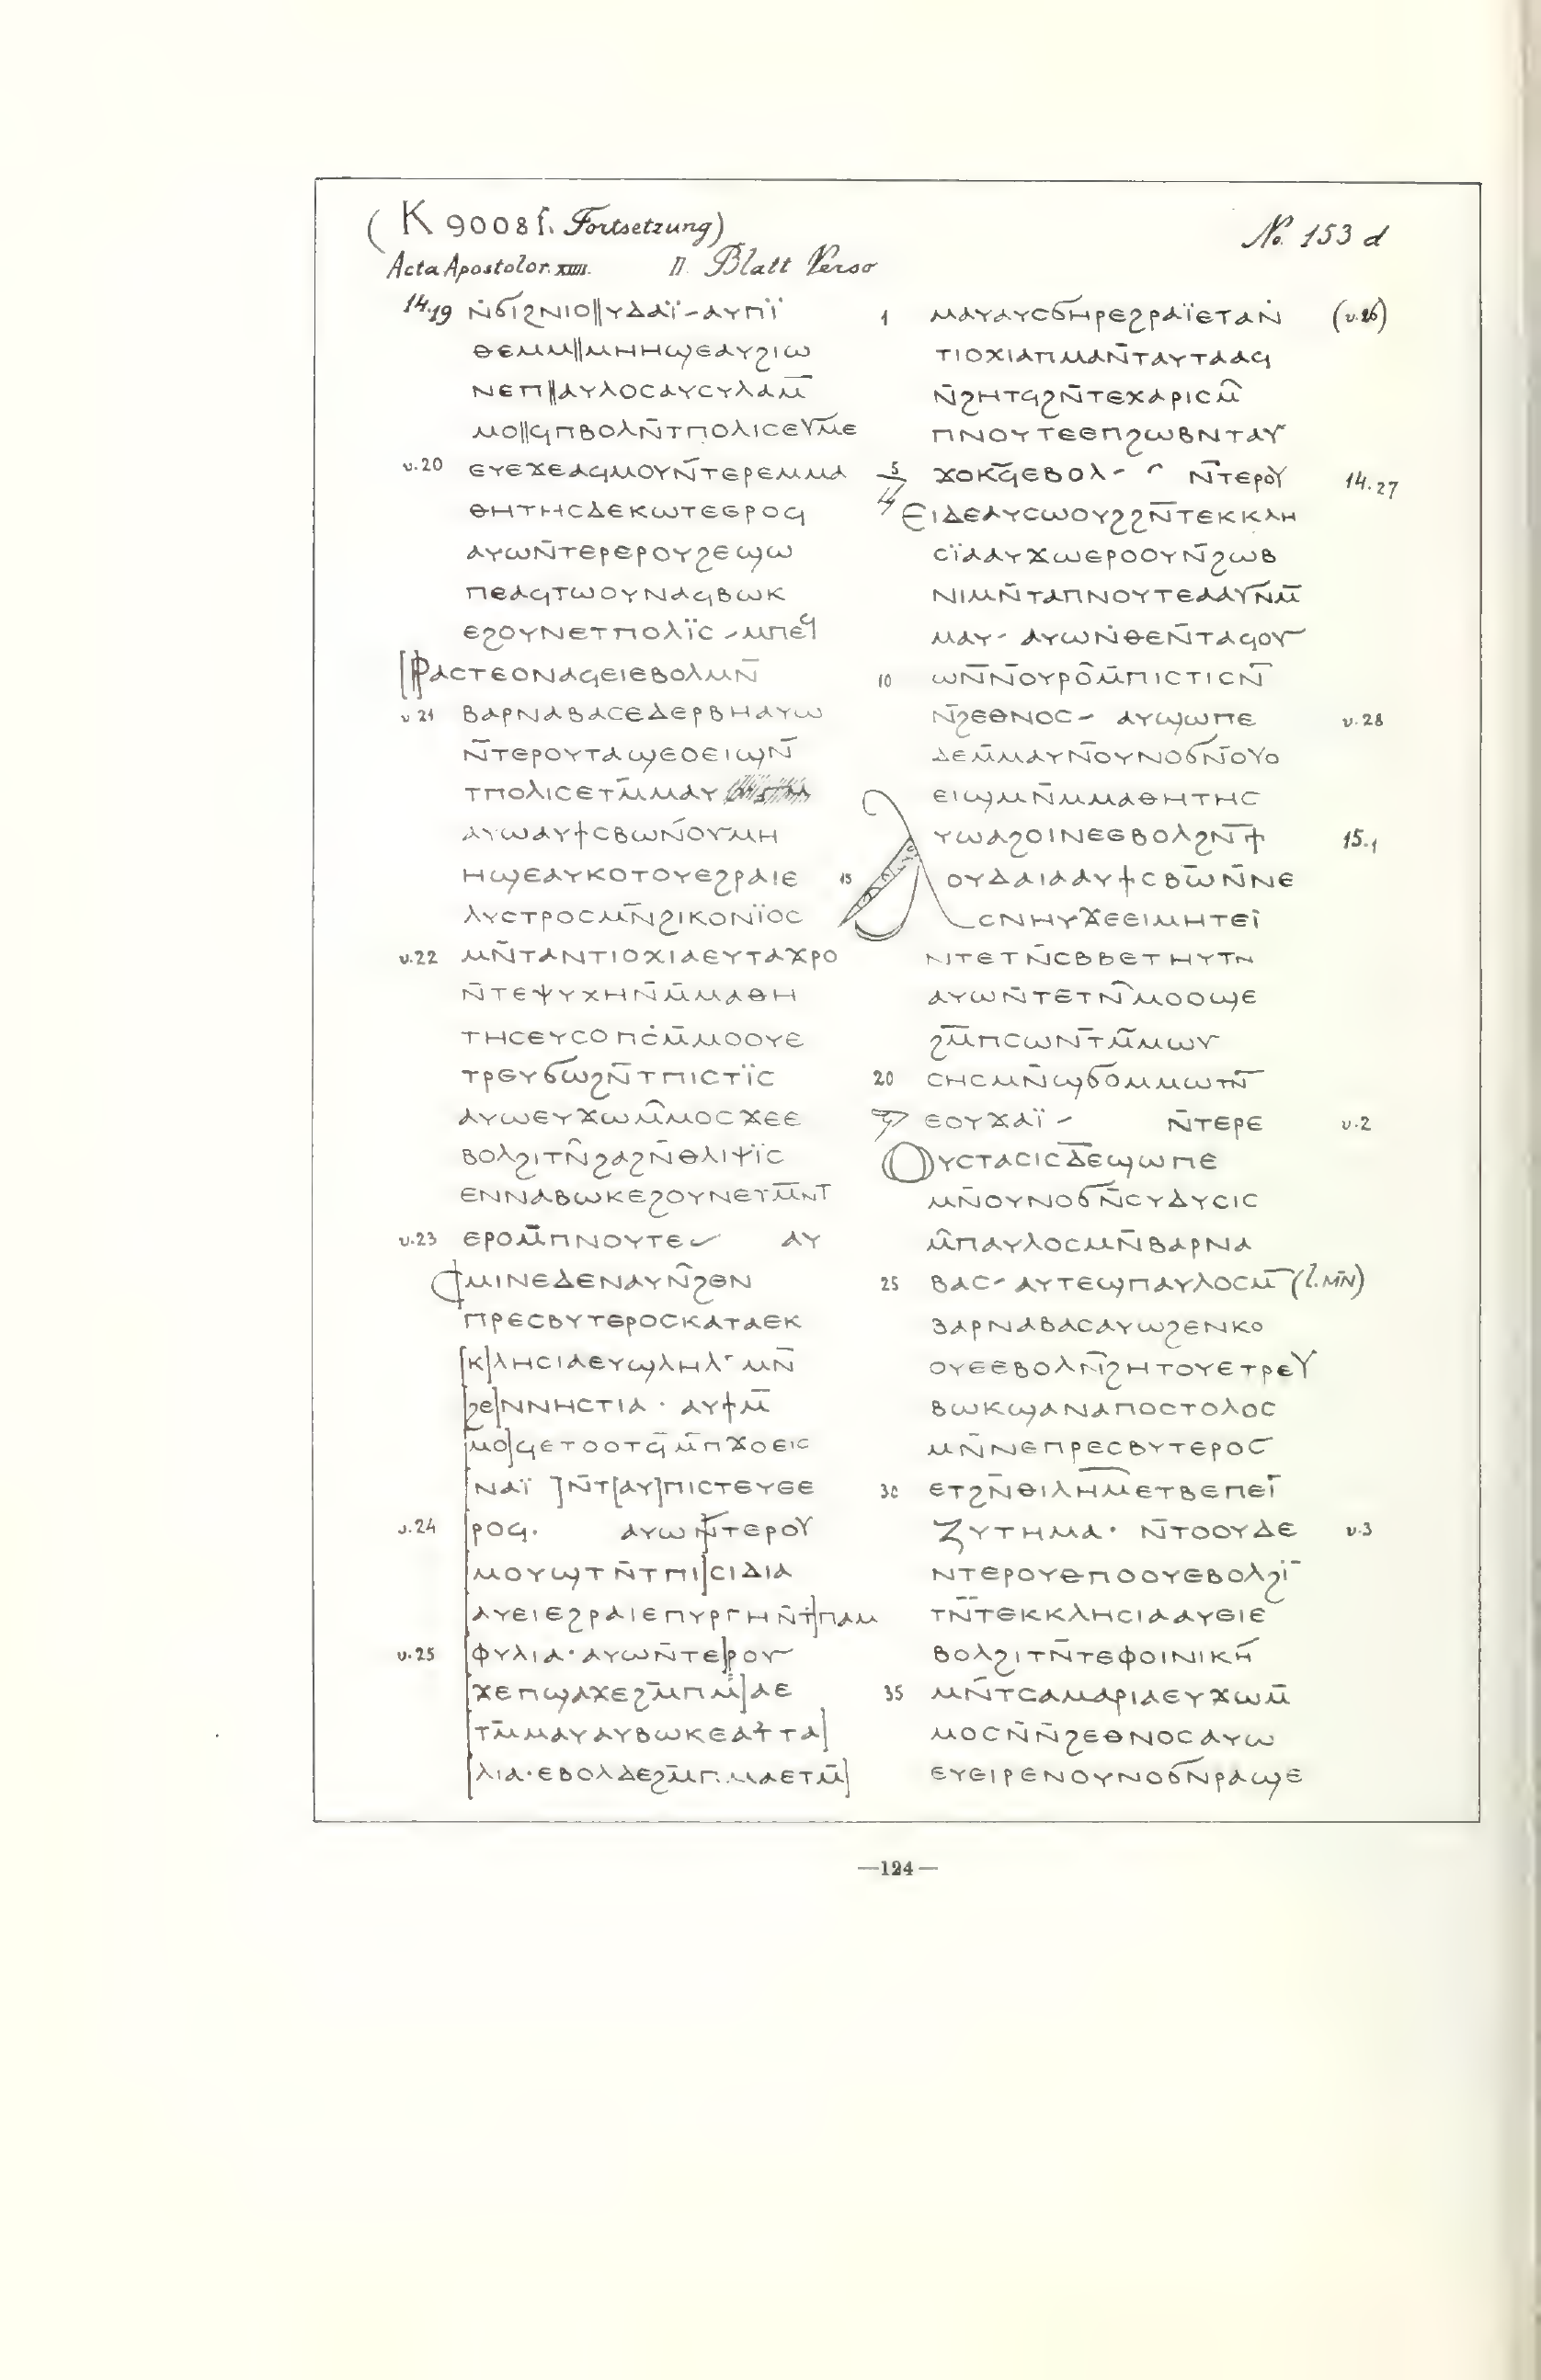 (K 9008 f. Fortsetzung)
No. 153 d
Acta Apostolor. XIIII. II. Blatt Verso
14.19 ⲛ̄ϭⲓϩⲛⲓⲟ||ⲩⲇⲁⲓ̈-ⲁⲩⲡⲓ̈
ⲑⲉⲙⲙ||ⲙⲏⲏϣⲉⲁⲩϩⲓⲱ
ⲛⲉⲡ||ⲁⲩⲗⲟⲥⲁⲩⲥⲩⲗⲁⲙ̄
ⲙⲟ||ϥⲡⲃⲟⲗⲛ̄ⲧⲡⲟⲗⲓⲥⲉⲩⲙ̄ⲉ
v.20 ⲉⲩⲉϫⲉⲁϥⲙⲟⲩⲛ̄ⲧⲉⲣⲉⲙⲙⲁ
ⲑⲏⲧⲏⲥⲇⲉⲕⲱⲧⲉⲉⲣⲟϥ
ⲁⲩⲱⲛ̄ⲧⲉⲣⲉⲣⲟⲩϩⲉϣⲱ
ⲡⲉⲁϥⲧⲱⲟⲩⲛⲁϥⲃⲱⲕ
ⲉϩⲟⲩⲛⲉⲧⲡⲟⲗⲓ̈ⲥ-ⲙⲡⲉϥ
[ⲣⲁⲥⲧⲉⲟⲛⲁϥⲉⲓⲉⲃⲟⲗⲙⲛ̄
v 21 ⲃⲁⲣⲛⲁⲃⲁⲥⲉⲇⲉⲣⲃⲏⲁⲩⲱ
ⲛ̄ⲧⲉⲣⲟⲩⲧⲁϣⲉⲟⲉⲓϣⲛ̄
ⲧⲡⲟⲗⲓⲥⲉⲧⲙ̄ⲙⲁⲩ
ⲁⲩⲱⲁⲩϯⲥⲃⲱⲛ̄ⲟⲩⲙⲏ
ⲏϣⲉⲁⲩⲕⲟⲧⲟⲩⲉϩⲣⲁⲓⲉ
ⲗⲩⲥⲧⲣⲟⲥⲙⲛ̄ϩⲓⲕⲟⲛⲓ̈ⲟⲥ
v.22 ⲙⲛ̄ⲧⲁⲛⲧⲓⲟⲭⲓⲁⲉⲩⲧⲁϫⲣⲟ
ⲛ̄ⲧⲉⲯⲩⲭⲏⲛ̄ⲙ̄ⲙⲁⲑⲏ
ⲧⲏⲥⲉⲩⲥⲟⲡⲥ̇ⲙ̄ⲙⲟⲟⲩⲉ
ⲧⲣⲉⲩϭⲱϩⲛ̄ⲧⲡⲓⲥⲧⲓ̈ⲥ
ⲁⲩⲱⲉⲩϫⲱⲙ̄ⲙⲟⲥϫⲉⲉ
ⲃⲟⲗϩⲓⲧⲛ̄ϩⲁϩⲛ̄ⲑⲗⲓⲯⲓ̈ⲥ
ⲉⲛⲛⲁⲃⲱⲕⲉϩⲟⲩⲛⲉⲧⲙ̄ⲛⲧ
v.23 ⲉⲣⲟⲙ̄ⲡⲛⲟⲩⲧⲉ- ⲁⲩ
ⲥϯⲙⲓⲛⲉⲇⲉⲛⲁⲩⲛ̄ϩⲉⲛ
ⲡⲣⲉⲥⲃⲩⲧⲉⲣⲟⲥⲕⲁⲧⲁⲉⲕ
[ⲕ]ⲗⲏⲥⲓⲁⲉⲩϣⲗⲏⲗ· ⲙⲛ̄
[ϩⲉ]ⲛⲛⲏⲥⲧⲓⲁ · ⲁⲩϯⲙ̄
[ⲙⲟ]ϥⲉⲧⲟⲟⲧϥ̄ⲙ̄ⲡϫⲟⲉⲓⲥ
[ⲛⲁⲓ̈ ]ⲛ̄ⲧ[ⲁⲩ]ⲡⲓⲥⲧⲉⲩⲉⲉ
v.24 [ⲣⲟϥ· ⲁⲩⲱⲛ̄]ⲧⲉⲣⲟⲩ
[ⲙⲟⲩϣⲧⲛ̄ⲧⲡⲓ]ⲥⲓⲇⲓⲁ
[ⲁⲩⲉⲓⲉϩⲣⲁⲓⲉⲡⲩⲣⲅⲏⲛ̄ⲧ]ⲡⲁⲙ
v.25 [ⲫⲩⲗⲓⲁ·ⲁⲩⲱⲛ̄ⲧⲉ]ⲣⲟⲩ
[ϫⲉⲡϣⲁϫⲉϩⲙ̄ⲡⲙ]ⲁⲉ
[ⲧⲙ̄ⲙⲁⲩⲁⲩⲃⲱⲕⲉⲁⲧⲧⲁ]
[ⲗⲓⲁ·ⲉⲃⲟⲗⲇⲉϩⲙ̄ⲡⲙⲁⲉⲧⲙ̄]
1 ⲙⲁⲩⲁⲩⲥϭⲏⲣⲉϩⲣⲁⲓ̈ⲉⲧⲁⲛ̇ (v.26)
ⲧⲓⲟⲭⲓⲁⲡⲙⲁⲛ̄ⲧⲁⲩⲧⲁⲁϥ
ⲛ̄ϩⲏⲧϥϩⲛ̄ⲧⲉⲭⲁⲣⲓⲥⲙ̄
ⲡⲛⲟⲩⲧⲉⲉⲡϩⲱⲃⲛⲧⲁⲩ
5 ϫⲟⲕϥ̄ⲉⲃⲟⲗ- ⲛ̄ⲧⲉⲣⲟⲩ 14.27
ⲉⲓⲇⲉⲁⲩⲥⲱⲟⲩϩϩⲛ̄ⲧⲉⲕⲕⲗⲏ
ⲥⲓ̈ⲁⲁⲩϫⲱⲉⲣⲟⲟⲩⲛ̄ϩⲱⲃ
ⲛⲓⲙⲛ̄ⲧⲁⲡⲛⲟⲩⲧⲉⲁⲁⲩⲛ̄ⲙ̄
ⲙⲁⲩ- ⲁⲩⲱⲛ̇ⲑⲉⲛ̄ⲧⲁϥⲟⲩ
10 ⲱⲛ̄ⲛ̄ⲟⲩⲣⲟⲙ̄ⲡⲓⲥⲧⲓⲥⲛ̄
ⲛ̄ϩⲉⲑⲛⲟⲥ- ⲁⲩϣⲱⲡⲉ v.28
ⲇⲉⲙ̄ⲙⲁⲩⲛ̄ⲟⲩⲛⲟϭⲛ̄ⲟⲩⲟ
ⲉⲓϣⲙⲛ̄ⲙⲙⲁⲑⲏⲧⲏⲥ
ⲁⲩⲱⲁϩⲟⲓⲛⲉⲉⲃⲟⲗϩⲛ̄ϯ 15.1
15 ⲟⲩⲇⲁⲓⲁⲁⲩϯⲥⲃⲱⲛ̄ⲛⲉ
ⲥⲛⲏⲩϫⲉⲉⲓⲙⲏⲧⲉⲓ̈
ⲛⲧⲉⲧⲛ̄ⲥⲃⲃⲉⲧⲏⲩⲧⲛ
ⲁⲩⲱⲛ̄ⲧⲉⲧⲛ̄ⲙⲟⲟϣⲉ
ϩⲙ̄ⲡⲥⲱⲛⲧ̄ⲙ̄ⲙⲱⲩ
20 ⲥⲏⲥⲙⲛ̄ϣϭⲟⲙⲙⲱⲧⲛ̄
ⲉⲟⲩϫⲁⲓ̈- ⲛ̄ⲧⲉⲣⲉ v.2
ⲟⲩⲥⲧⲁⲥⲓⲥⲇⲉϣⲱⲡⲉ
ⲙⲛ̄ⲟⲩⲛⲟϭⲛ̄ⲥⲩⲇⲩⲥⲓⲥ
ⲙ̄ⲡⲁⲩⲗⲟⲥⲙⲛ̄ⲃⲁⲣⲛⲁ
25 ⲃⲁⲥ- ⲁⲩⲧⲉϣⲡⲁⲩⲗⲟⲥⲙ̄ (l. ⲙⲛ̄)
ⲃⲁⲣⲛⲁⲃⲁⲥⲁⲩⲱϩⲉⲛⲕⲟ
ⲟⲩⲉⲉⲃⲟⲗⲛ̄ϩⲏⲧⲟⲩⲉⲧⲣⲉⲩ
ⲃⲱⲕϣⲁⲛⲁⲡⲟⲥⲧⲟⲗⲟⲥ
ⲙⲛ̄ⲛⲉⲡⲣⲉⲥⲃⲩⲧⲉⲣⲟⲥ
30 ⲉⲧϩⲛ̄ⲑⲓⲗⲏⲙ̄ⲉⲧⲃⲉⲡⲉⲓ̈
ⲍⲩⲧⲏⲙⲁ· ⲛ̄ⲧⲟⲟⲩⲇⲉ v.3
ⲛⲧⲉⲣⲟⲩⲑⲡⲟⲟⲩⲉⲃⲟⲗϩⲓ̈
ⲧⲛ̄ⲧⲉⲕⲕⲗⲏⲥⲓⲁⲁⲩⲉⲓⲉ
ⲃⲟⲗϩⲓⲧⲛ̄ⲧⲉⲫⲟⲓⲛⲓⲕⲏ
35 ⲙⲛ̄ⲧⲥⲁⲙⲁⲣⲓⲁⲉⲩϫⲱⲙ̄
ⲙⲟⲥⲛ̄ⲛ̄ϩⲉⲑⲛⲟⲥⲁⲩⲱ
ⲉⲩⲉⲓⲣⲉⲛⲟⲩⲛⲟϭⲛⲣⲁϣⲉ
—124—